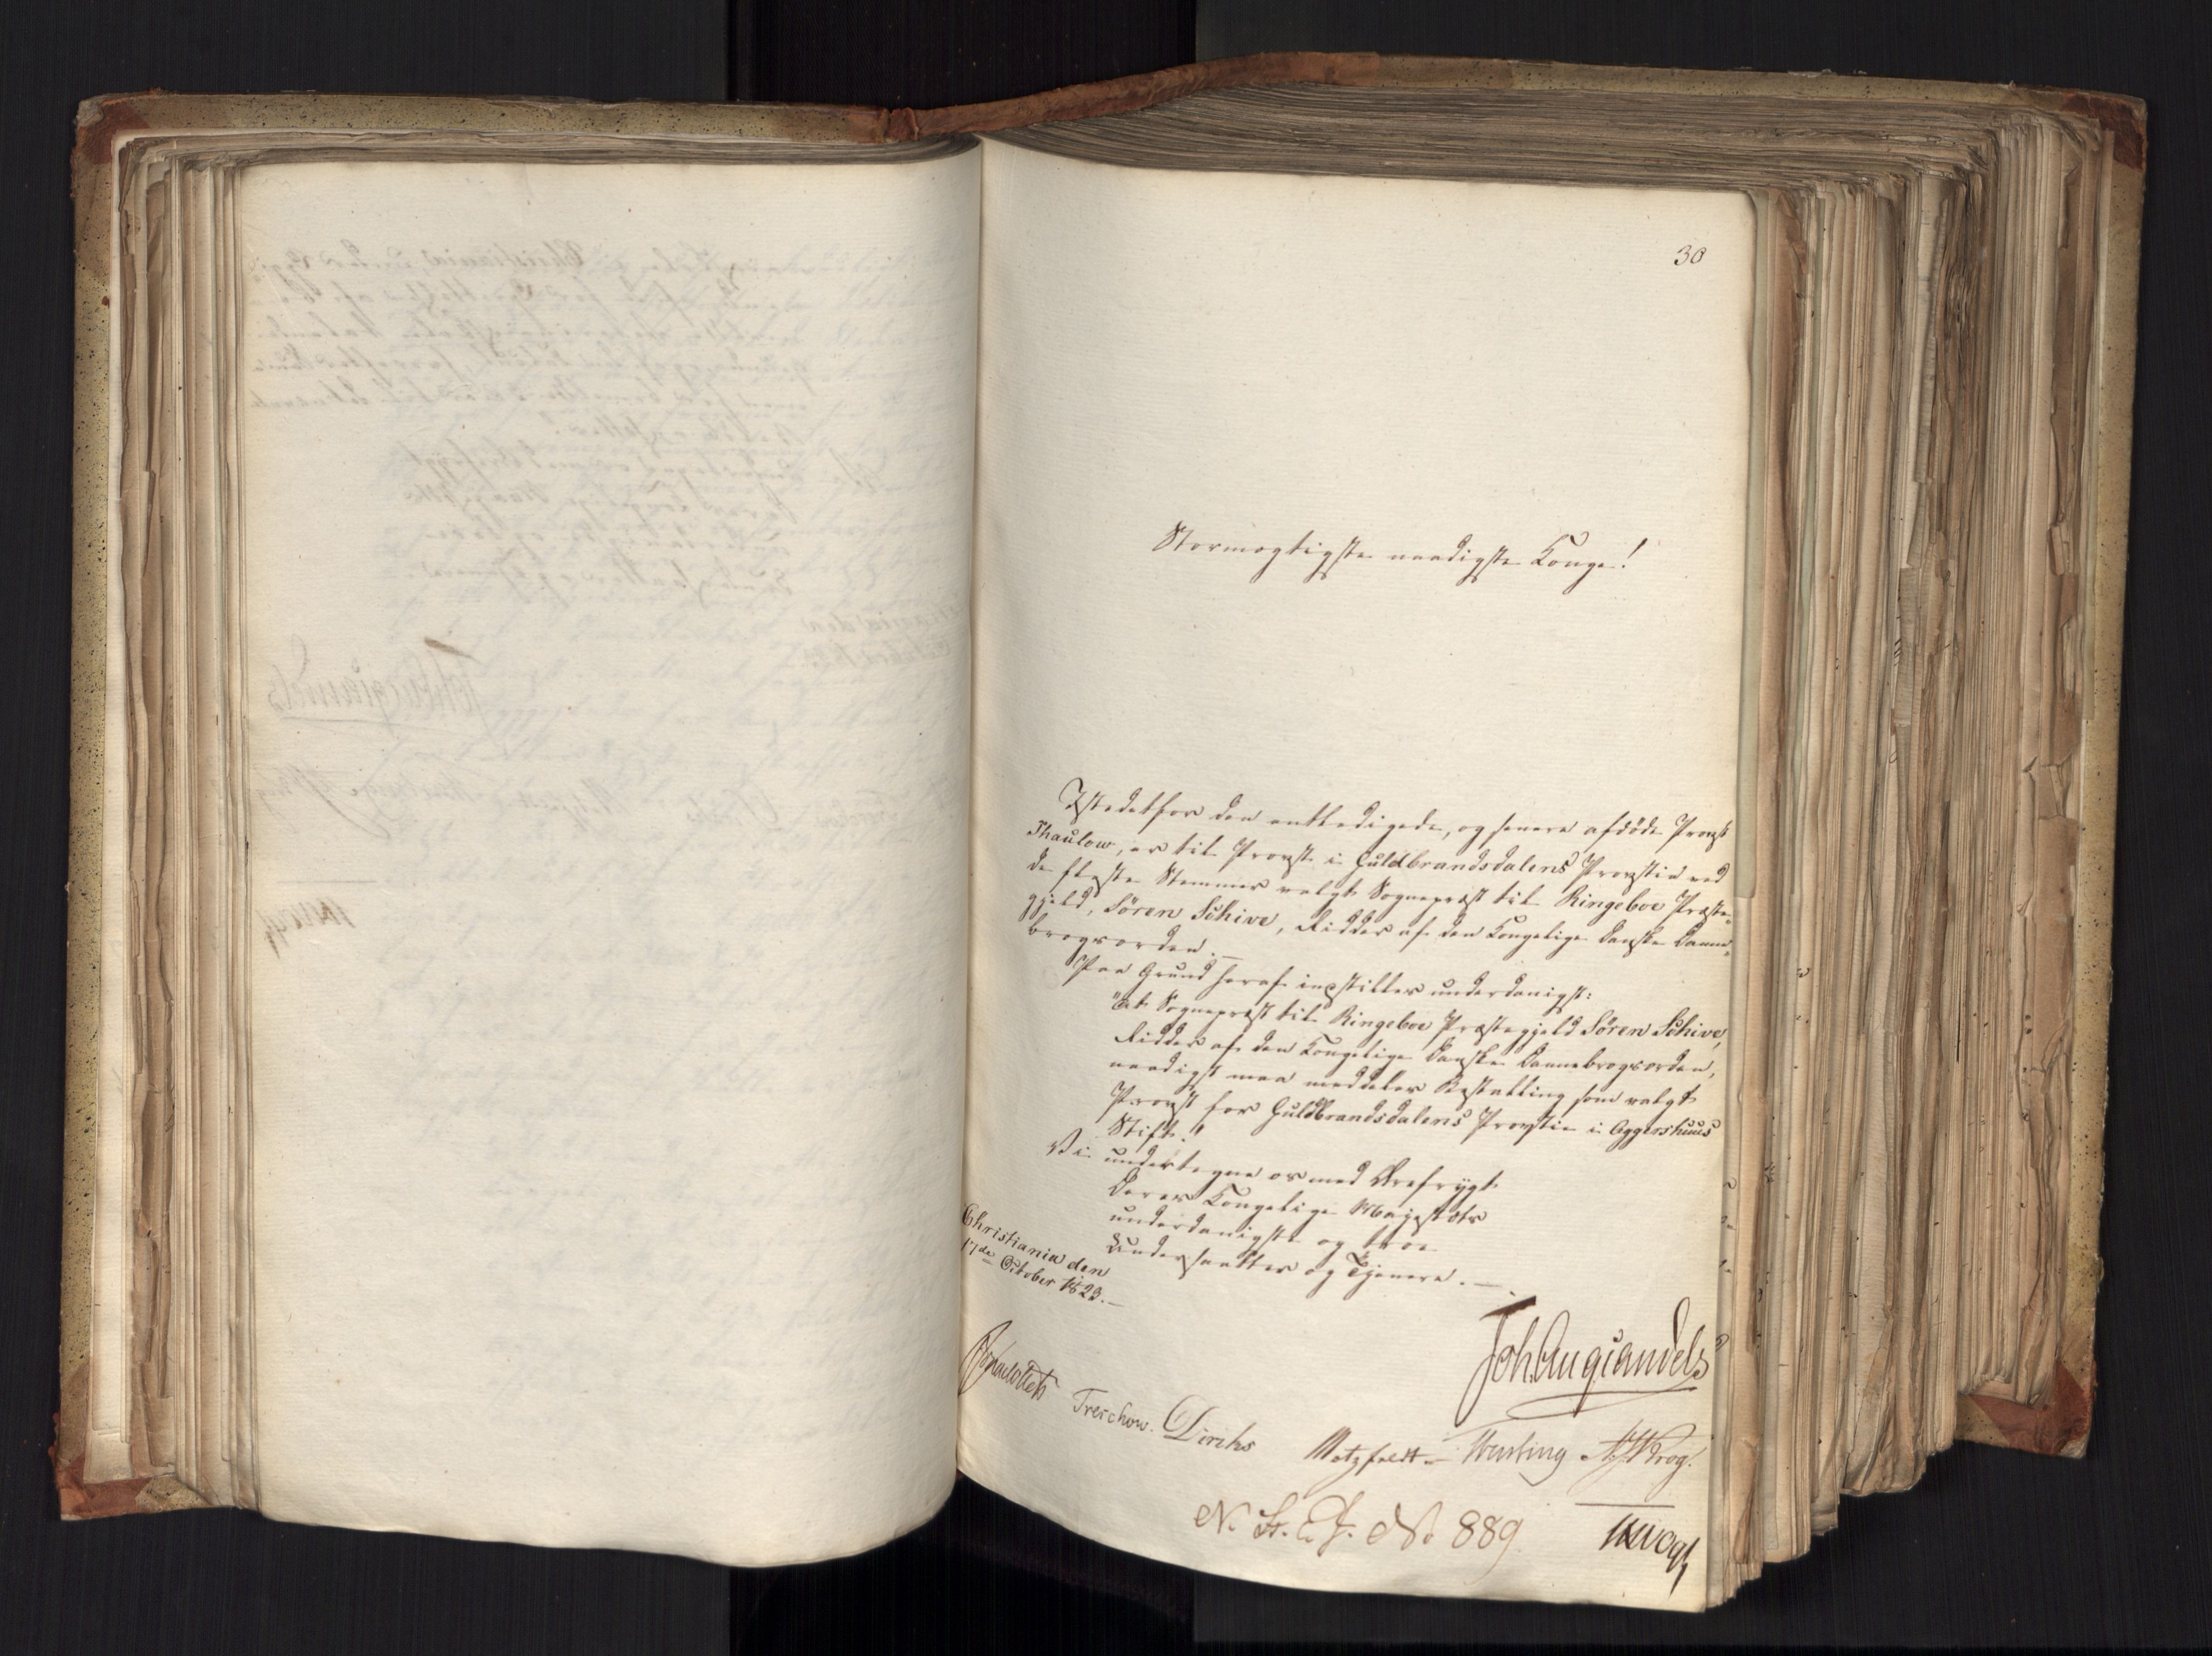 30
Stormægtigste naadigste Konge!
Istedetfor den entledigede, og senere afdöde Provst
Thaulow, er til Provst i Guldbrandsdalens Provstie ved
de fleste Stemmer valgt Sognepræst til Ringeboe Præste-
gjeld, Sören Schive, Ridder af den Kongelige Danske Danne-
brogsorden.—
Paa Grund heraf indstilles underdanigst:
"At Sognepræst til Ringeboe Præstegjeld Sören Schive,
Ridder af den Kongelige Danske Dannebrogsorden,
naadigst maa meddeles Bestalling som valgt
Provst for Guldbrandsdalens Provstie i Aggershuus
Stift."
Vi undertegne os med Ærefrygt
Deres Kongelige Majestæts
underdanigste og troe
Undersaatter og Tjenere.—
Christiania den
17de October 1823.—
Joh Aug Sandels
Treschow. Diriks Motzfeldt Krog.
N. St. C. J. No 889